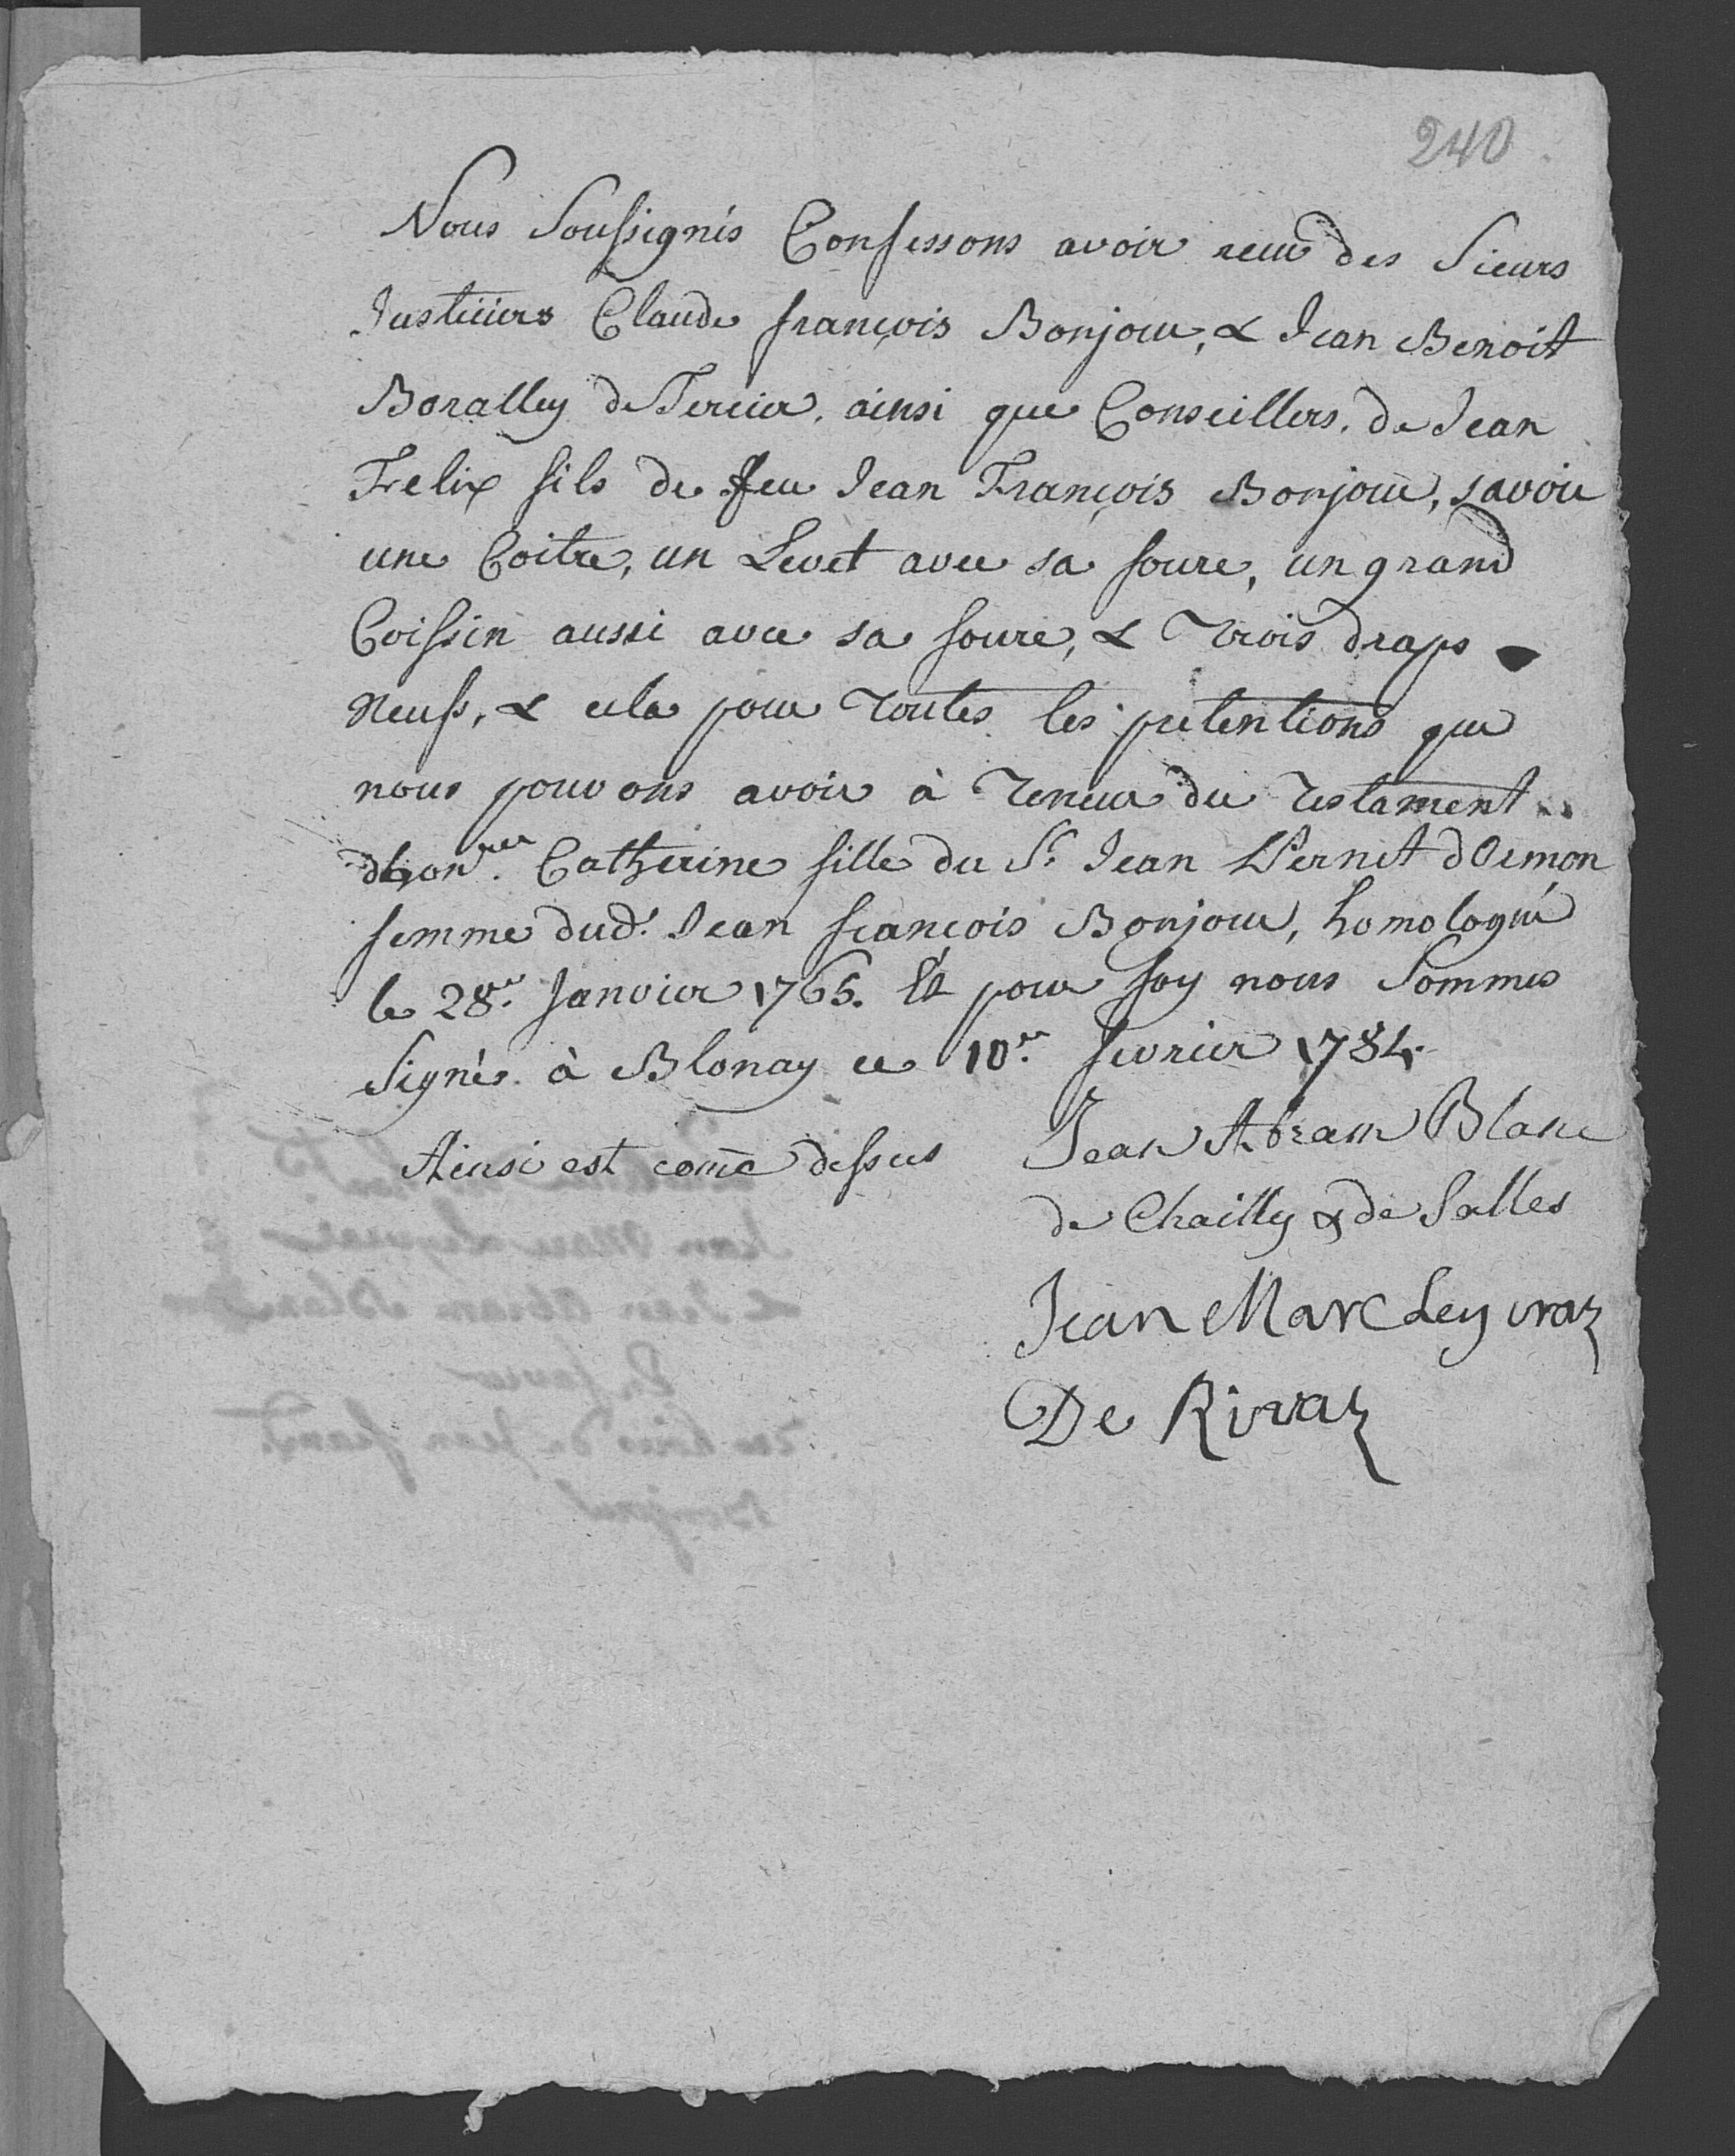 240
Nous Soussignés Confessons avoir receu des Sieurs
Justiciers Claude françois Bonjour, & Jean Benoit
Boralley de Tercier, ainsi que Conseillers, de Jean
Felix fils de feu Jean François Bonjour, savoir
une Coitre, un Levet avec sa foure, un grand
Coissin aussi avec sa foure, & Trois draps
Neufs, & cela pour Toutes les pretentions que
nous pouvons avoir à Teneur du Testament
d'hon.ée Catherine fille du Sr. Jean Pernet d'Ormon
femme dud.t Jean françois Bonjour, homologué
le 28e. Janvier 1765. Et pour foy nous Sommes
Signés à Blonay ce 10e. fevrier 1784.
Ainsi est come dessus
Jean Abram Blanc
de Chailly & de Salles
Jean Marc Leyvraz
De Rivaz